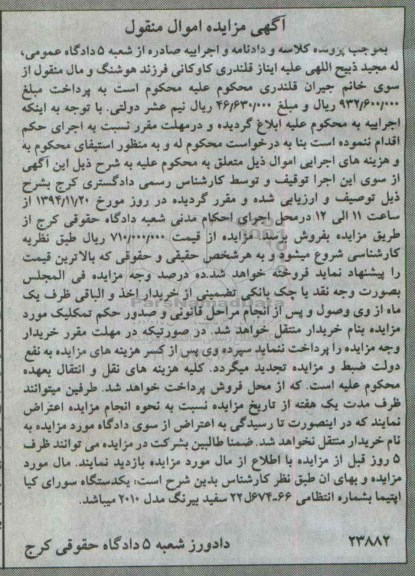 آگهی مزایده اموال منقول
بموجب پرونده کلاسه و دادنامه و اجراییه صادره از شعبه ۵ دادگاه عمومی،
له مجید ذبیح اللهی علیه ایناز قلندری کاوکانی فرزند هوشنگ و مال منقول از
سوی خانم جیران قلندری محکوم علیه محکوم است به پرداخت مبلغ
۹۳۲/۶۰۰/۰۰۰ ریال و مبلغ ۴۶/۶۳۰/۰۰۰ ریال نیم عشر دولتی. با توجه به اینکه
اجراییه به محکوم علیه ابلاغ گردیده و درمهلت مقرر نسبت به اجرای حکم
اقدام ننموده است بنا به درخواست محکوم له و به منظور استیفای محکوم به
و هزینه های اجرایی اموال ذیل متعلق به محکوم علیه به شرح ذیل این آگهی
از سوی این اجرا توقیف و توسط کارشناس رسمی دادگستری کرج بشرح
ذیل توصیف و ارزیابی شده و مقرر گردیده در روز مورخ ۱۳۹۴/۱۱/۲۰ از
ساعت ۱۱ الی ۱۲ درمحل اجرای احکام مدنی شعبه دادگاه حقوقی کرج از
طریق مزایده بفروش برسد. مزایده از قیمت ۷۱۰/۰۰۰/۰۰۰ ریال طبق نظریه
کارشناسی شروع میشود و به هرشخص حقیقی و حقوقی که بالاترین قیمت
را پیشنهاد نماید فروخته خواهد شد.ده درصد وجه مزایده فی المجلس
بصورت وجه نقد یا چک بانکی تضمینی از خریدار اخذ و الباقی ظرف یک
ماه از وی وصول و پس از انجام مراحل قانونی و صدور حکم تمکلیک مورد
مزایده بنام خریدار منتقل خواهد شد. در صورتیکه در مهلت مقرر خریدار
وجه مزایده را پرداخت ننماید سپرده وی پس از کسر هزینه های مزایده به نفع
دولت ضبط و مزایده تجدید میگردد. کلیه هزینه های نقل و انتقال بعهده
محکوم علیه است. که از محل فروش پرداخت خواهد شد. طرفین میتوانند
ظرف مدت یک هفته از تاریخ مزایده نسبت به نحوه انجام مزایده اعتراض
نمایند که در اینصورت تا رسیدگی به اعتراض از سوی دادگاه مورد مزایده به
نام خریدار منتقل نخواهد شد. ضمنا طالبین بشرکت در مزایده می توانند ظرف
۵ روز قبل از مزایده با اطلاع از مال مورد مزایده بازدید نمایند. مال مورد
مزایده و بهای ان طبق نظر کارشناس بدین شرح است: یکدستگاه سورای کیا
اپتیما بشماره انتظامی ۶۶-۶۷۴ل۲۲ سفید بیرنگ مدل ۲۰۱۰ میباشد.
۲۳۸۸۲ دادورز شعبه ۵ دادگاه حقوقی کرج